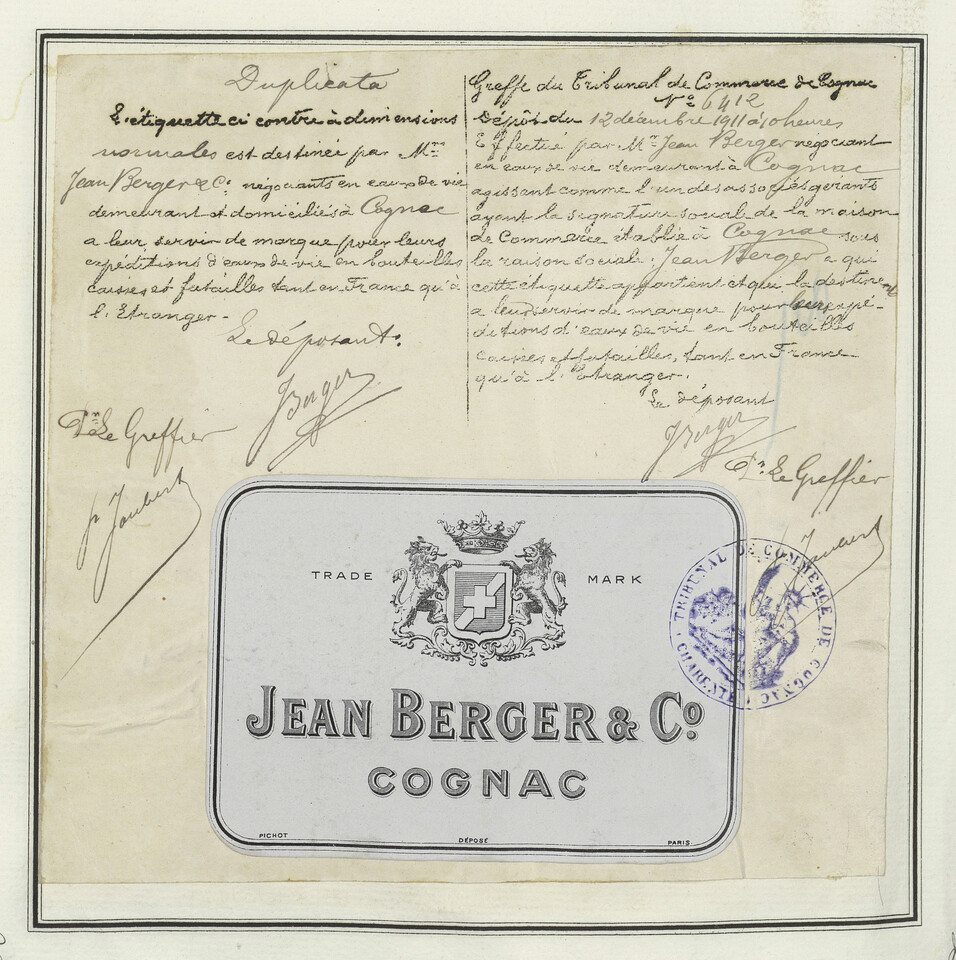 Duplicata
L'étiquette ci contre à dimensions
normales est destinée par Mrs
Jean Berger & Co négociants en eaux de vie
demeurant et domiciliés à Cognac
a leur servir de marque pour leurs
expéditions d'eaux de vie en bouteilles
caisses et futailles tant en France qu'à
l'Etranger.
Le déposant.
JBerger
Pr Le Greffier
p Joubert
Greffe du Tribunal de Commerce de Cognac
No 6412
Dépôt du 12 décembre 1911 à 10 heures
Effectué par Mr Jean Berger négociant
en eaux de vie demeurant à Cognac
agissant comme l'un des associés gérants
ayant la signature sociale de la maison
de Commerce établie à Cognac sous
la raison sociale: Jean Berger a qui
cette étiquette appartient et qui la destine
a leur servir de marque pour leur expé-
ditions d'eaux de vie en bouteilles
caisses et futailles, tant en France
qu'à l'Etranger.
Le déposant
JBerger
Pr Le Greffier
Joubert
TRADE MARK
JEAN BERGER & Co.
COGNAC
PICHOT DÉPOSÉ PARIS
TRIBUNAL DE COMMERCE DE COGNAC
CHARENTE